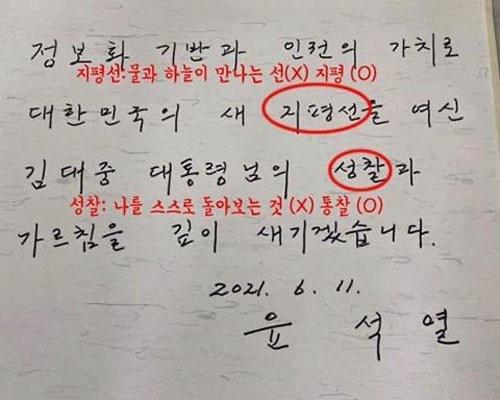 정보화 기반과 인권의 가치로
지평선:물과 하늘이 만나는 선(X) 지평 (O)
대한민국의 새 지평선을 여신
김대중 대통령님의 성찰과
성찰: 나를 스스로 돌아보는 것 (X) 통찰 (O)
가르침을 깊이 새기겠습니다.
2021. 6. 11.
윤 석 열